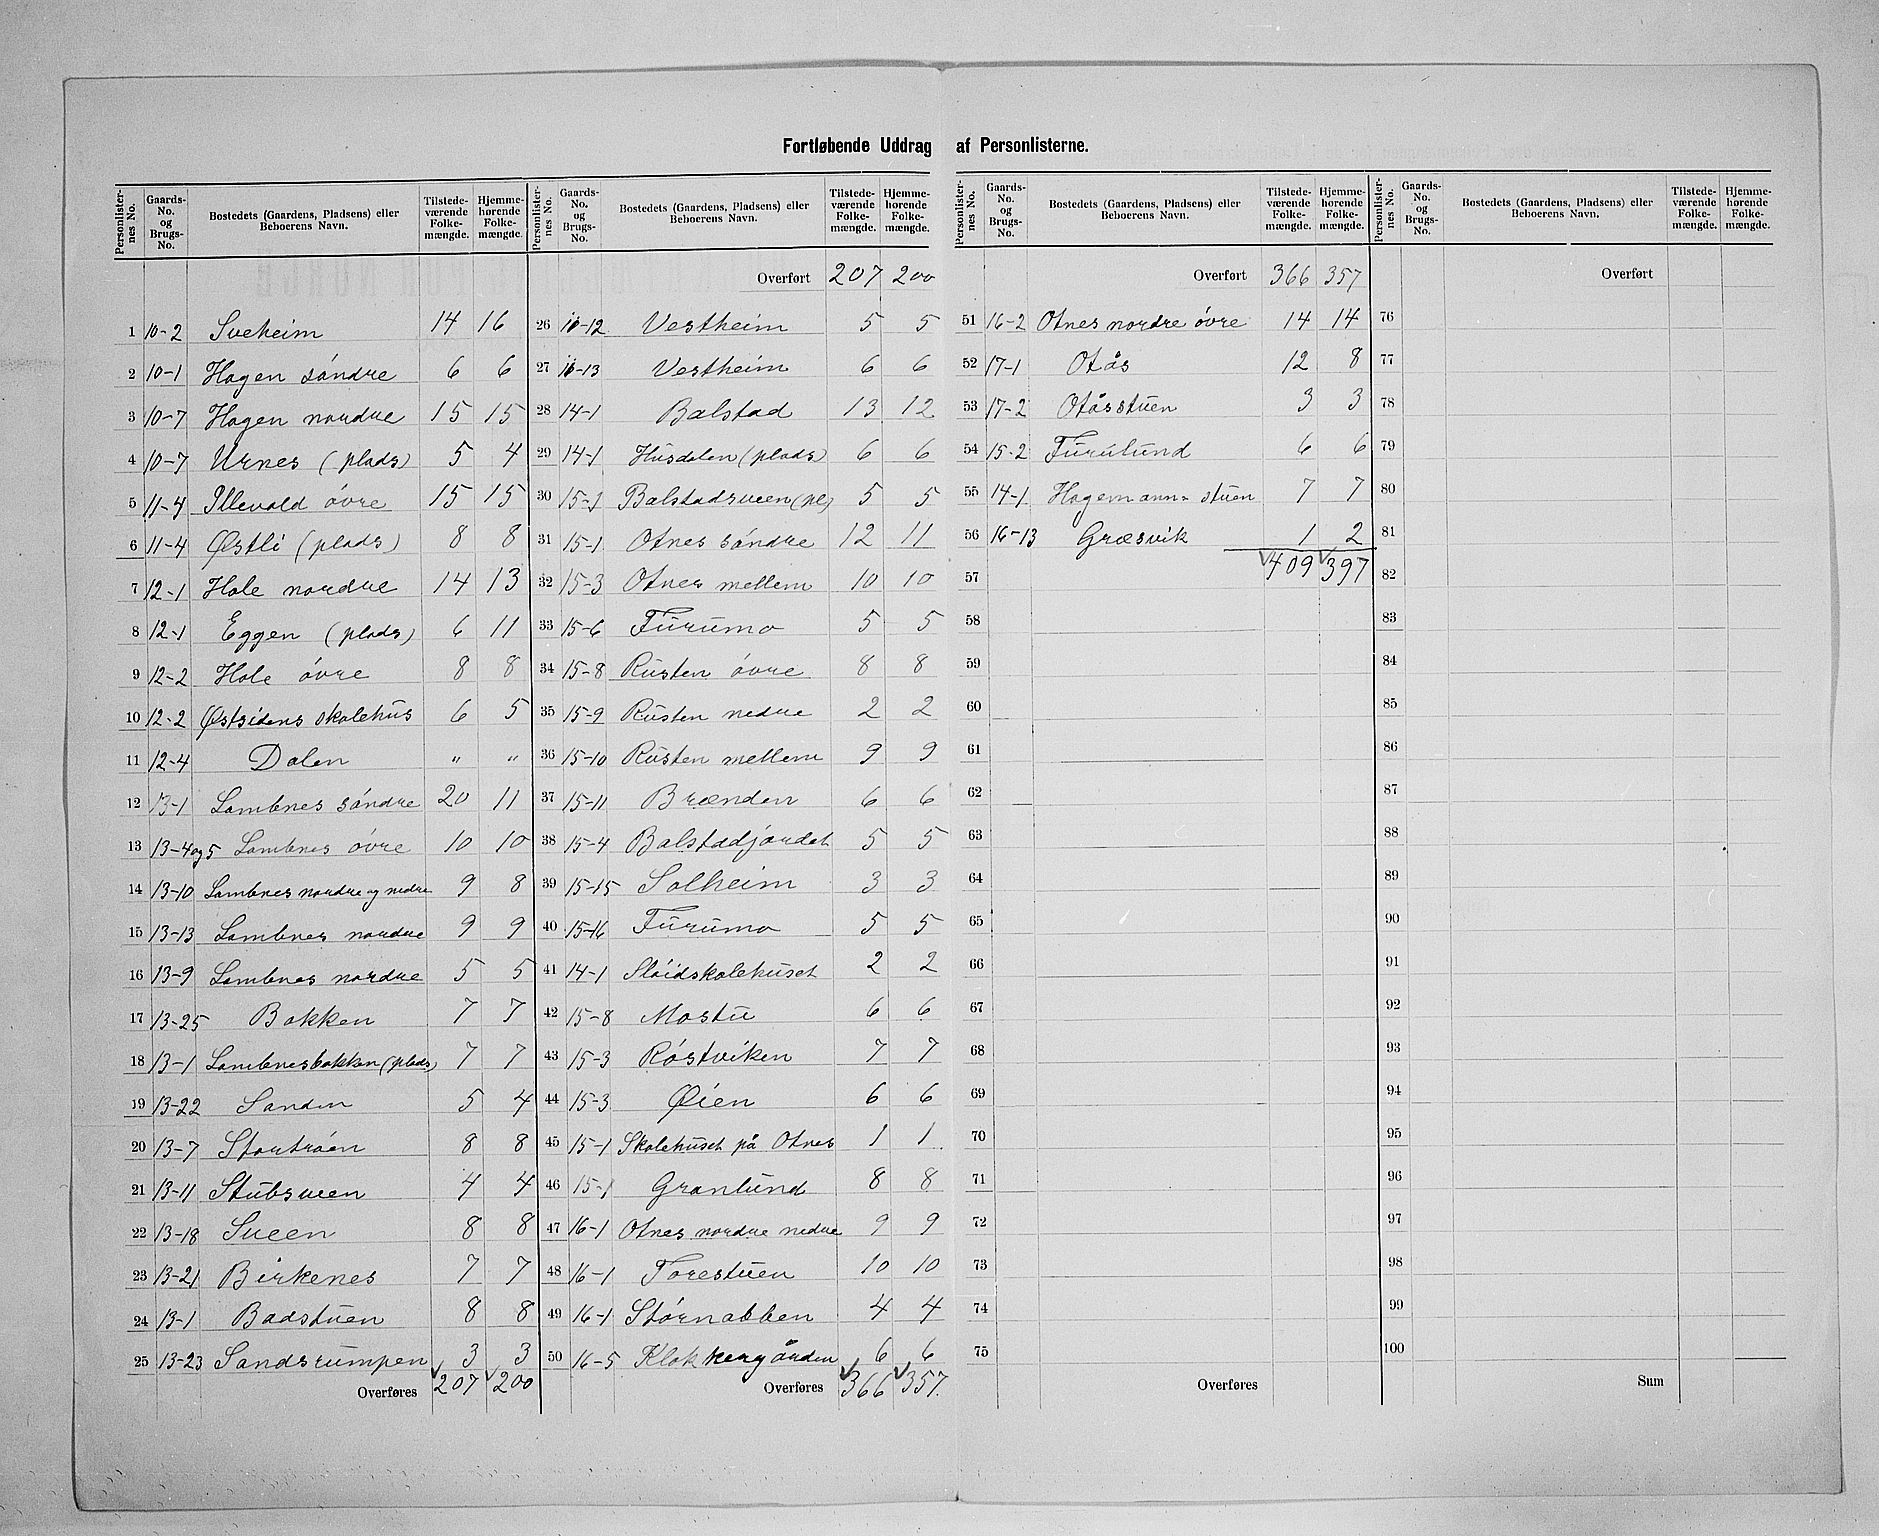 Fortløbende Uddrag af Personlisterne.
Personlister-nes No. Gaards-No. og Brugs-No. Bostedets (Gaardens, Pladsens) eller Beboerens Navn. Tilstede-værende Folke-mængde. Hjemme-hørende Folke-mængde.
1 10-2 Sveheim 14 16
2 10-1 Hagen söndre 6 6
3 10-7 Hagen nordre 15 15
4 10-7 Urnes (plads) 5 4
5 11-4 Illevold övre 15 15
6 11-4 Østli (plads) 8 8
7 12-1 Hole nordre 14 13
8 12-1 Eggen (plads) 6 11
9 12-2 Hole övre 8 8
10 12-2 Østsidens skolehus 6 5
11 12-4 Dalen " "
12 13-1 Lombnes söndre 20 11
13 13-4 og 5 Lombnes övre 10 10
14 13-10 Lombnes nordre og nedre 9 8
15 13-13 Lombnes nordre 9 9
16 13-9 Lombnes nordre 5 5
17 13-25 Bakken 7 7
18 13-1 Lombnesbakken (plads) 7 7
19 13-22 Sanden 5 4
20 13-7 Stortröen 8 8
21 13-11 Stubsveen 4 4
22 13-18 Sveen 8 8
23 13-21 Birkenes 7 7
24 13-1 Badstuen 8 8
25 13-23 Sandsrumpen 3 3
Overføres 207 200
Personlister-nes No. Gaards-No. og Brugs-No. Bostedets (Gaardens, Pladsens) eller Beboerens Navn. Tilstede-værende Folke-mængde. Hjemme-hørende Folke-mængde.
Overført 207 200
26 10-12 Vestheim 5 5
27 10-13 Vestheim 6 6
28 14-1 Balstad 13 12
29 14-1 Husdalen (plads) 6 6
30 15-1 Balstadsveen (pl) 5 5
31 15-1 Otnes söndre 12 11
32 15-3 Otnes mellem 10 10
33 15-6 Furumo 5 5
34 15-8 Rusten övre 8 8
35 15-9 Rusten nedre 2 2
36 15-10 Rusten mellem 9 9
37 15-11 Brænden 6 6
38 15-4 Balstadjordet 5 5
39 15-15 Solheim 3 3
40 15-16 Furumo 5 5
41 14-1 Slöidskolehuset 2 2
42 15-8 Mostu 6 6
43 15-3 Röstviken 7 7
44 15-3 Øien 6 6
45 15-1 Skolehuset på Otnes 1 1
46 15-1 Granlund 8 8
47 16-1 Otnes nordre nedre 9 9
48 16-1 Torestuen 10 10
49 16-1 Störnabben 4 4
50 16-5 Klokkergården 6 6
Overføres 366 357.
Personlister-nes No. Gaards-No. og Brugs-No. Bostedets (Gaardens, Pladsens) eller Beboerens Navn. Tilstede-værende Folke-mængde. Hjemme-hørende Folke-mængde.
Overført 366 357
51 16-2 Otnes nordre övre 14 14
52 17-1 Otås 12 8
53 17-2 Otåsstuen 3 3
54 15-2 Furulund 6 6
55 14-1 Hagemann-stuen 7 7
56 16-13 Græsvik 1 2
57 409 397
58
59
60
61
62
63
64
65
66
67
68
69
70
71
72
73
74
75
Overføres
Personlister-nes No. Gaards-No. og Brugs-No. Bostedets (Gaardens, Pladsens) eller Beboerens Navn. Tilstede-værende Folke-mængde. Hjemme-hørende Folke-mængde.
Overført
76
77
78
79
80
81
82
83
84
85
86
87
88
89
90
91
92
93
94
95
96
97
98
99
100
Sum